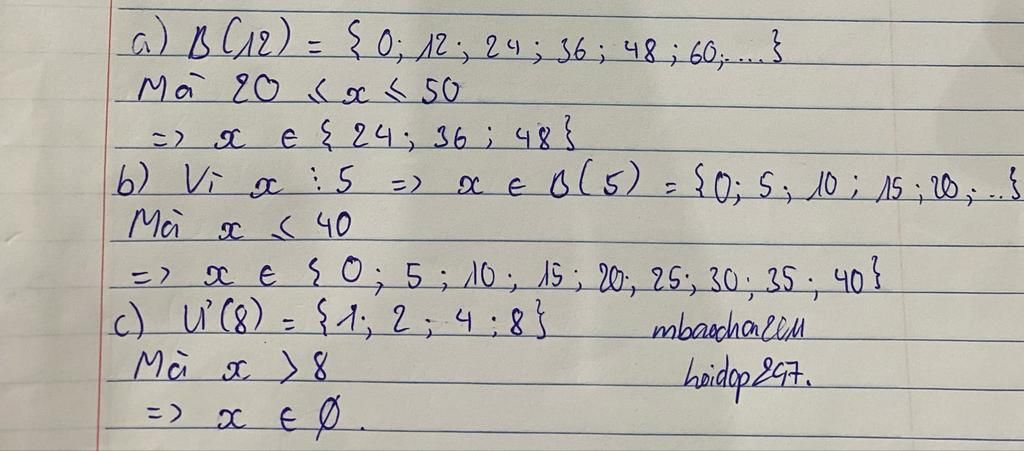 a) B(12) = {0; 12; 24; 36; 48; 60;...}
Mà 20 ≤ x ≤ 50
=> x ∈ {24; 36; 48}
b) Vì x ⋮ 5 => x ∈ B(5) = {0; 5; 10; 15; 20;...}
Mà x ≤ 40
=> x ∈ {0; 5; 10; 15; 20; 25; 30; 35; 40}
c) Ư(8) = {1; 2; 4; 8}
Mà x > 8
hoidap247.
=> x ∈ ∅.